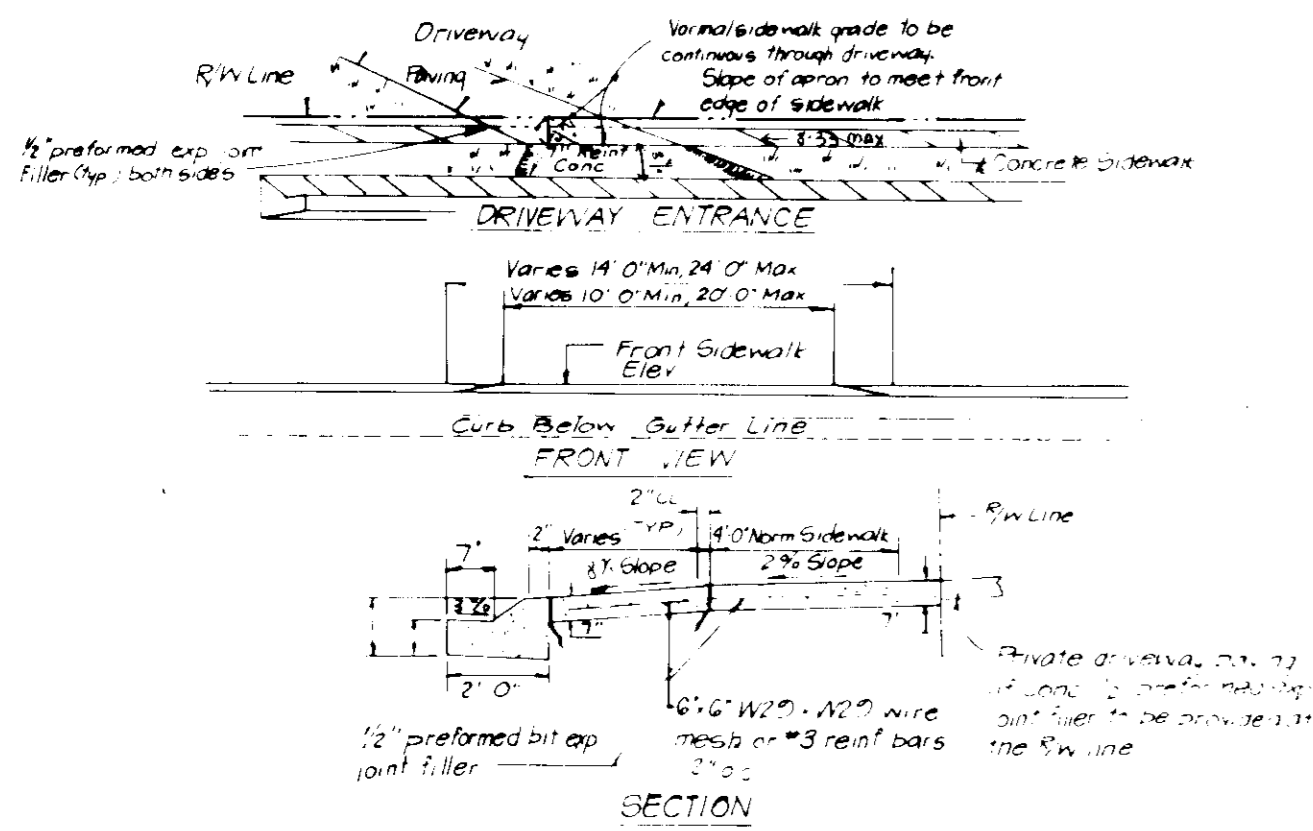 Driveway
R/W Line
Paving
Vormal sidewalk grade to be
continuous through driveway.
Slope of apron to meet front
edge of sidewalk
8.33 max
1/2" preformed exp
Filler (typ) both sides
7" Reinf
Conc
Concrete Sidewalk
DRIVEWAY ENTRANCE
Varies 14' 0" Min, 24' 0" Max
Varies 10' 0" Min, 20' 0" Max
Front Sidewalk
Elev
Curb Below Gutter Line
FRONT VIEW
2" CL
TYP)
R/W Line
2" Varies
4'0" Norm Sidewalk
7"
8% Slope
2% Slope
7"
7"
2' 0"
Private driveway
of conc 1/2 preformed exp
joint filler to be provided at
the R/W line
6"x6" W2.9 x W2.9 wire
mesh or #3 reinf bars
1/2" preformed bit exp
joint filler
SECTION